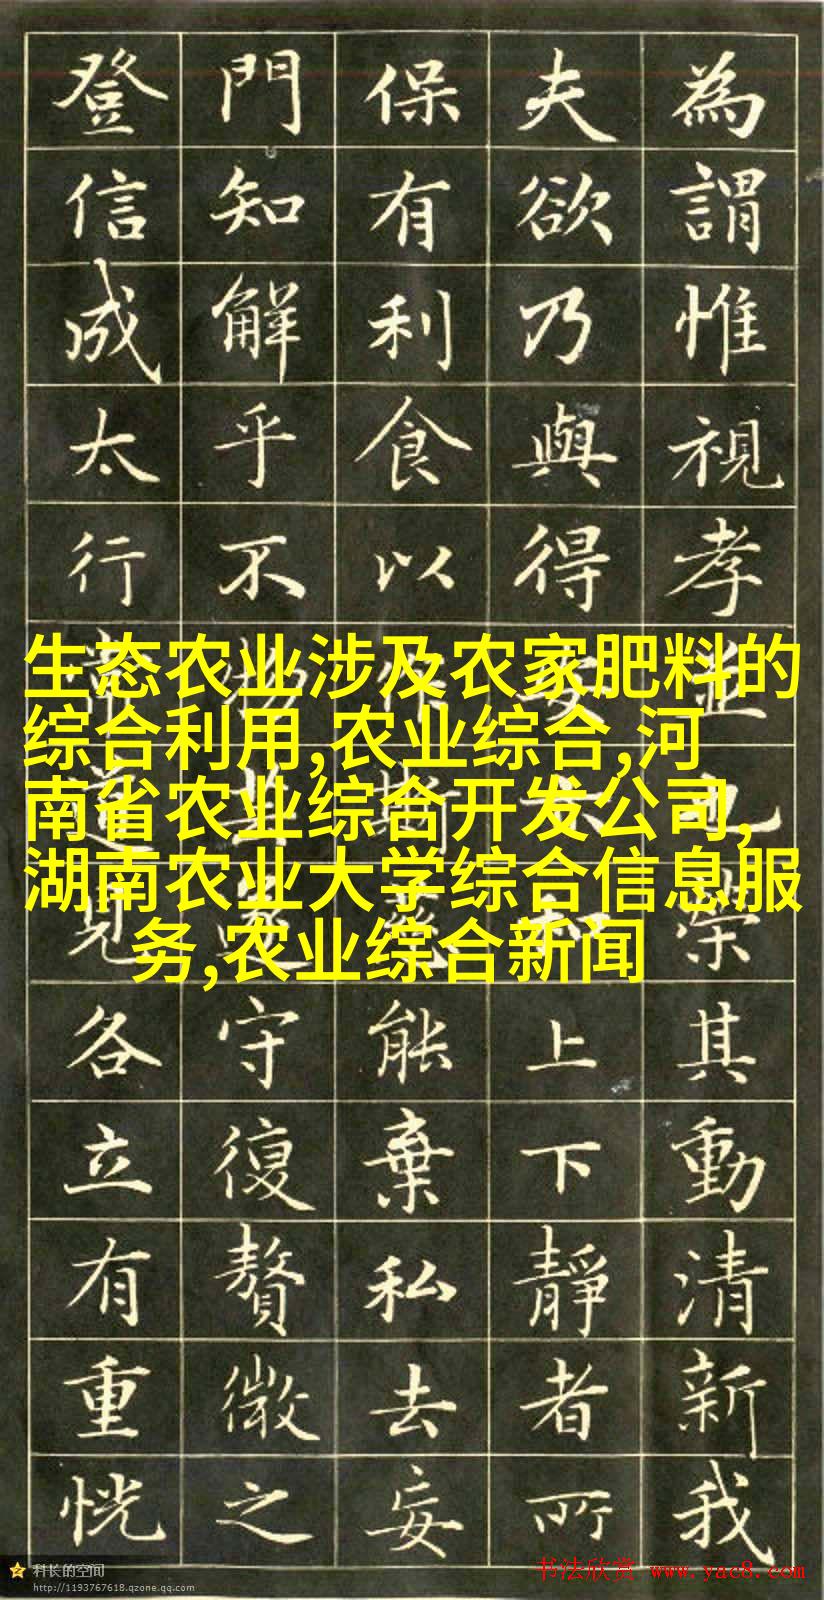 為謂惟視孝榮其動清新我
夫欲乃與得上下靜者所
保有利食以能棄私去妄
門知解乎不守復贅微之
登信成太行各立有重恍
生态农业涉及农家肥料的
综合利用,农业综合,河
南省农业综合开发公司,
湖南农业大学综合信息服
务,农业综合新闻
科长的空间
http://1193767618.qzone.qq.com
书法欣赏 www.yac8.com